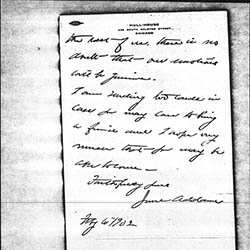 HULL-HOUSE
335 SOUTH HALSTED STREET
CHICAGO
the rest of us. There is no
doubt that our emotions
will be genuine.
I am sending two cards in
case you may care to bring
a friend and I hope very
much that you may be
able to come —
Faithfully yours
Jane Addams